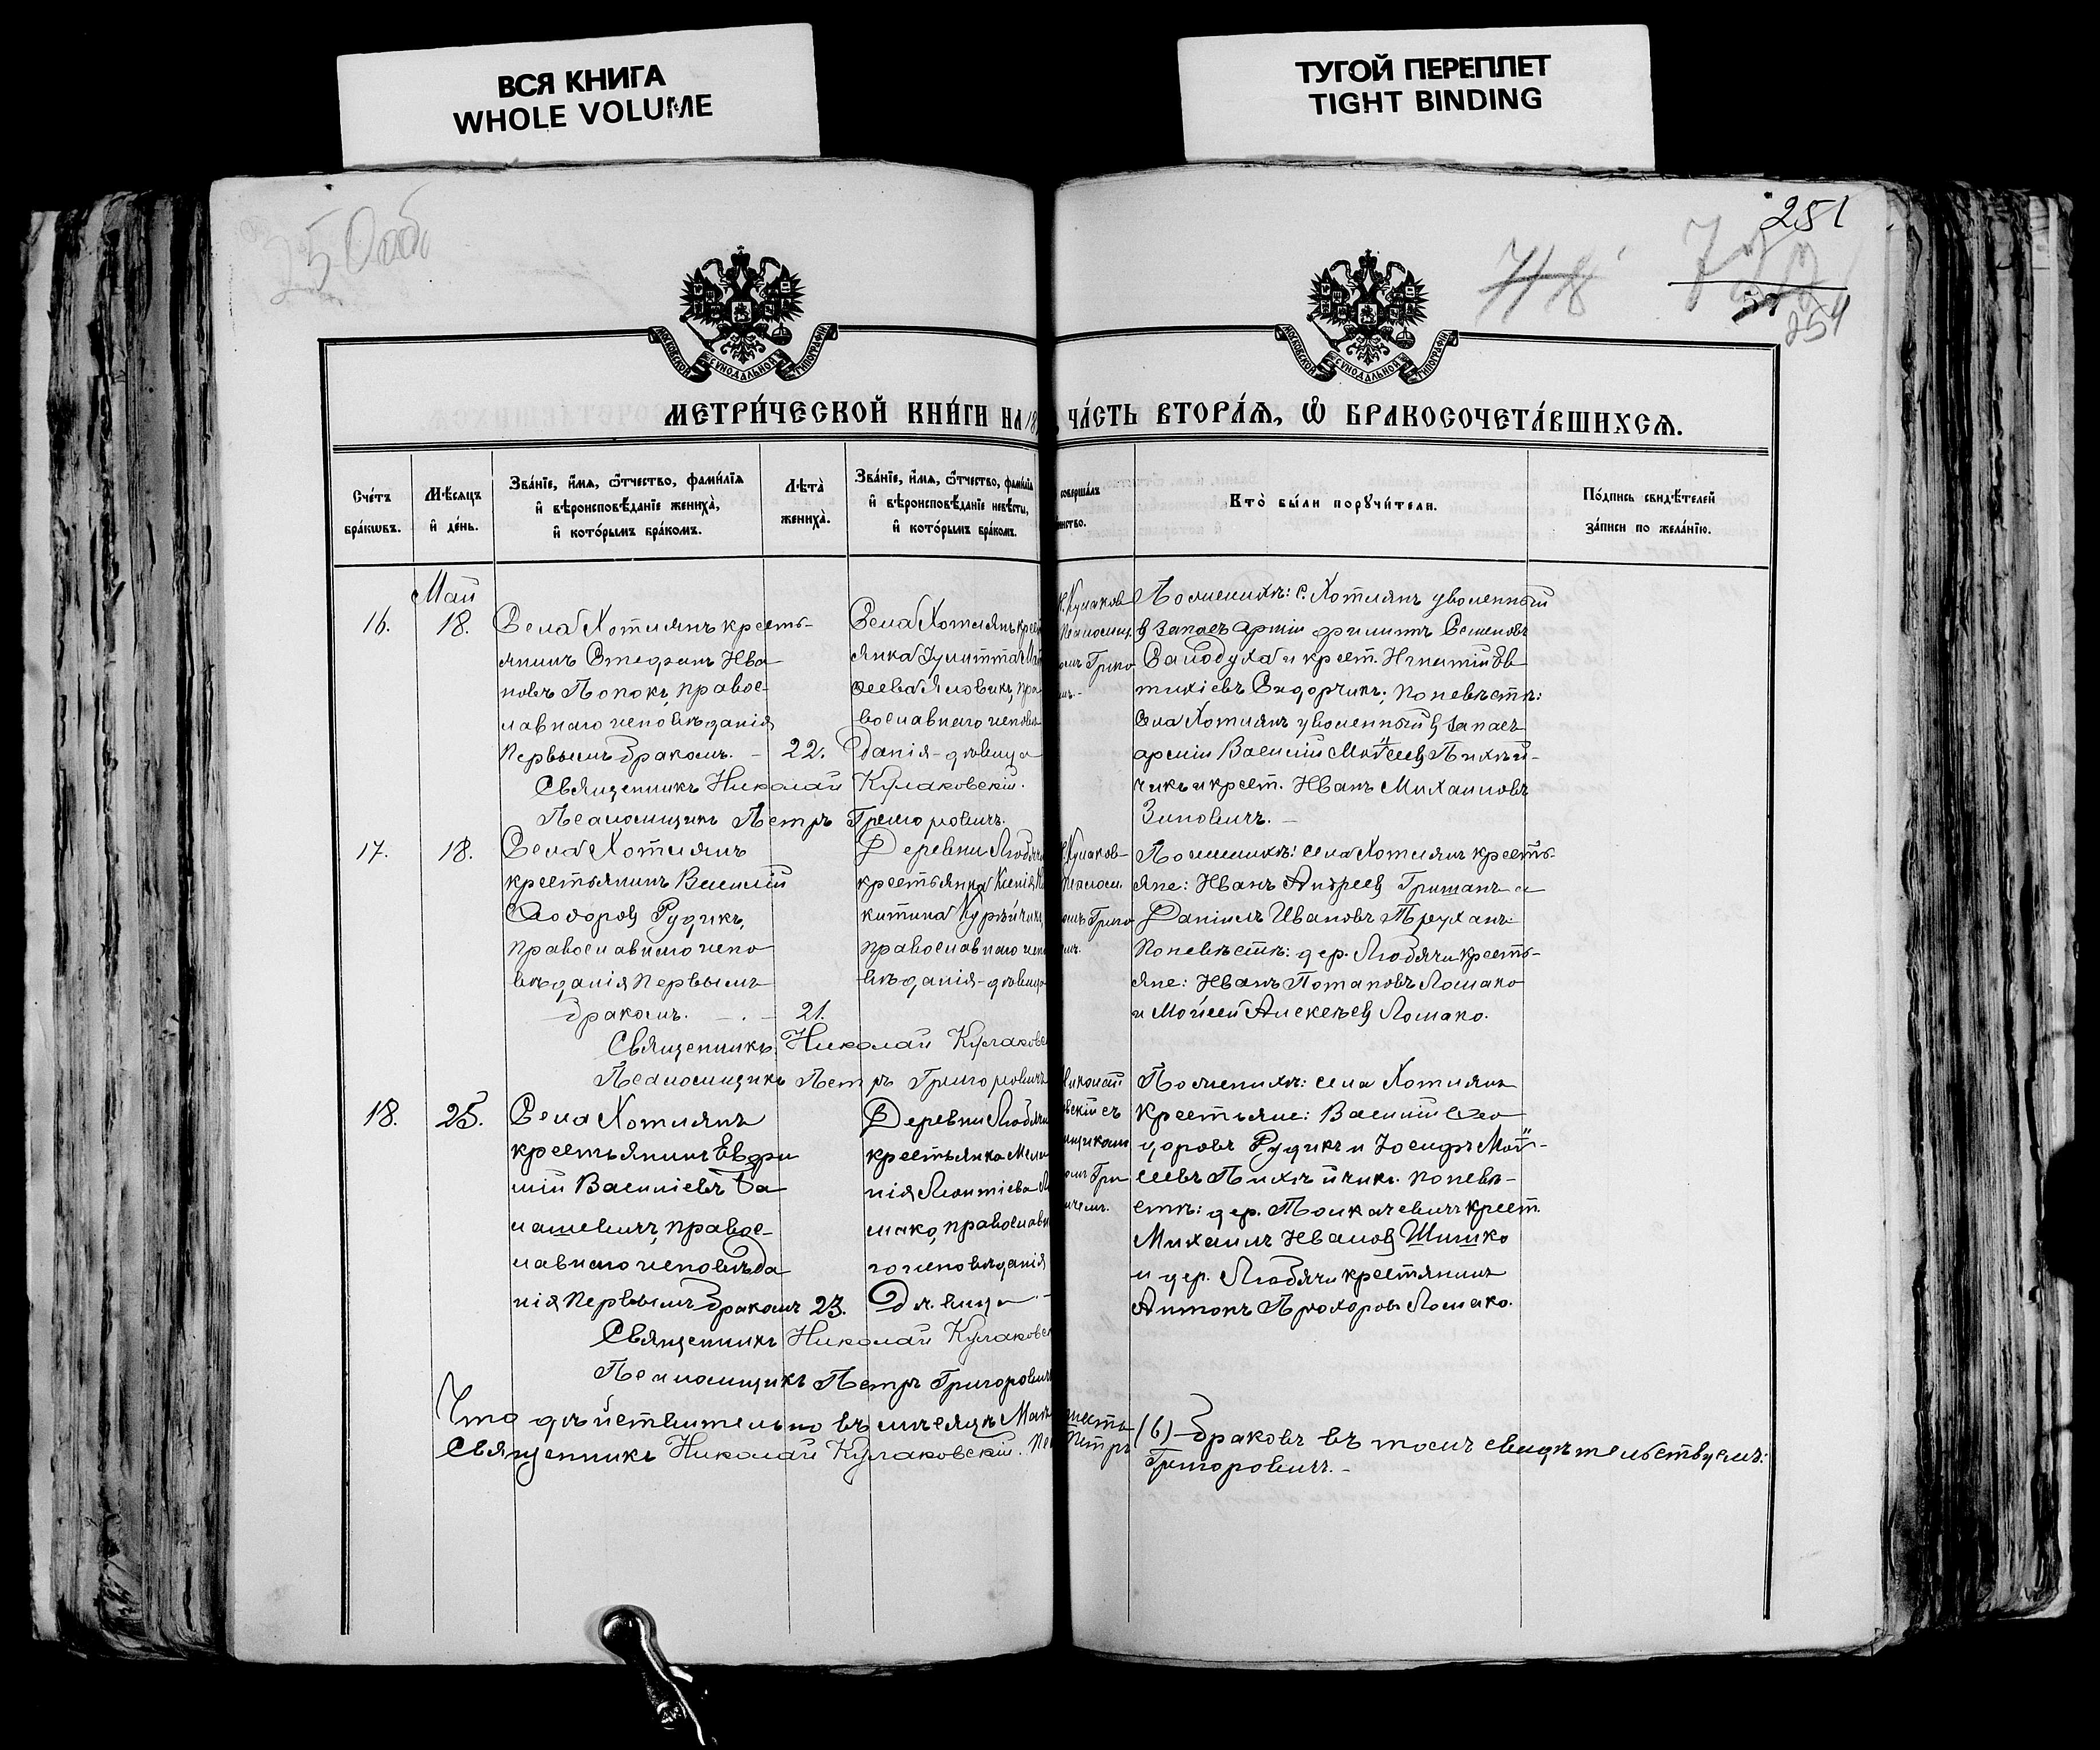 ВСЯ КНИГА
WHOLE VOLUME
ТУГОЙ ПЕРЕПЛЕТ
TIGHT BINDING
250об
251
254
МОСКОВСКОЙ СѴНОДАЛЬНОЙ ТИПОГРАФІИ
МОСКОВСКОЙ СѴНОДАЛЬНОЙ ТИПОГРАФІИ
МЕТРИ́ЧЕСКОЙ КНИ́ГИ НА 18
ЧА́СТЬ ВТОРА́Ѧ, Ѡ҆ БРАКОСОЧЕТА́ВШИХСѦ.
Сче́тъ бра́кѡвъ.
Мѣ́сѧцъ и҆ де́нь.
Зва́нїе, и҆́мѧ, ѻ҆́тчество, фами́лїѧ и҆ вѣроисповѣ́данїе жениха̀, и҆ кото́рымъ бра́комъ.
Лѣ́та жениха̀.
Зва́нїе, и҆́мѧ, ѻ҆́тчество, фами́лїѧ и҆ вѣроисповѣ́данїе невѣ́сты, и҆ кото́рымъ бра́комъ.
соверша́лъ
Кто̀ бы́ли порꙋчи́тели.
По́дпись свидѣ́телей за́писи по жела́нїю.
Май
16.
18.
Села Хотлянъ кресть-
янинъ Стефанъ Ива
новъ Попокъ, правос-
лавнаго исповѣданія
первымъ бракомъ. -
22.
Села Хотлянъ крес
янка Іулитта
сеева Яловикъ, пра
вославнаго исповѣ
данія - дѣвица
Н. Кулаков
Псаломщ.
омъ Григо
По женихѣ: с. Хотлянъ уволенный
въ запасъ арміи Филиппъ Семеновъ
Самодуха и крест. Игнатій Ев
тихіевъ Сидорчикъ; по невѣстѣ:
Села Хотлянъ уволенный въ запасъ
арміи Василій Мойсеевъ Пихѣй-
чикъ и крест. Иванъ Михаиловъ
Зиновичъ. -
Священникъ Николай Кулаковскій.
Псаломщикъ Петръ Григоровичъ.
17.
18.
Села Хотлянъ
крестьянинъ Василій
Ѳеодоровъ Рудикъ,
православнаго испо
вѣданія первымъ
бракомъ. - . -
21.
Деревни Любячи
крестьянка Ксенія Ни
китина Курьичикъ,
православнаго испо
вѣданія - дѣвица
Н. Кулаков-
Псалом
омъ Григо
По женихѣ: села Хотлянъ кресть-
яне: Иванъ Андреевъ Гришанъ и
Даніилъ Ивановъ Труханъ.
По невѣстѣ: дер. Любячи кресть-
яне: Иванъ Потаповъ Ломако
и Мойсей Алексѣевъ Ломако.
Священникъ Николай Кулаковс
Псаломщикъ Петръ Григоровичъ
18.
25.
Села Хотлянъ
крестьянинъ Евфи
мій Василіевъ Ба
лашевичъ, правос-
лавнаго исповѣда
нія первымъ бракомъ
23.
Деревни Любячи
крестьянка Мела
нія Леонтіева Ло
мако, православна
го исповѣданія
Дѣвица -
Николай
овскій съ
мщикомъ
омъ Гри
ичемъ.
По женихѣ: села Хотлянъ
крестьяне: Василій Ѳео
доровъ Рудикъ и Іосифъ Мой-
сеевъ Пихѣйчикъ. По невѣ-
стѣ: дер. Толкачевичъ крест.
Михаилъ Ивановъ Шишко
и дер. Любячи крестянинъ
Антонъ Прохоровъ Ломако.
Священникъ Николай Кулаковс
Псаломщикъ Петръ Григоровичъ
Что дѣйствительно въ мѣсяцѣ Маѣ шесть (6) браковъ въ томъ свидѣтельствуемъ:
Священникъ Николай Кулаковскій. Пс Петръ Григоровичъ. -